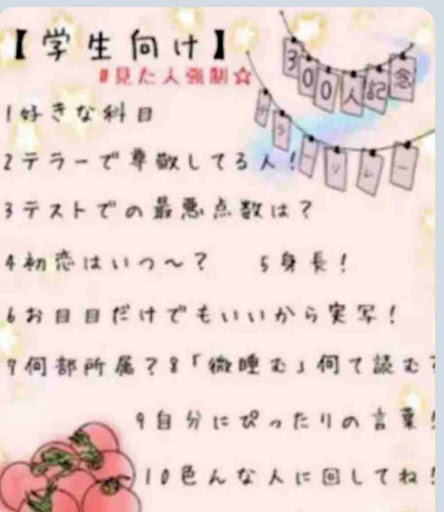 【学生向け】
#見た人強制☆
300人記念
1好きな科目
2テラーで尊敬してる人!
3テストでの最悪点数は?
4初恋はいつ～? 5身長!
6お目目だけでもいいから実写!
7何部所属?8「微睡む」何て読む?
9自分にぴったりの言葉!
10色んな人に回してね!